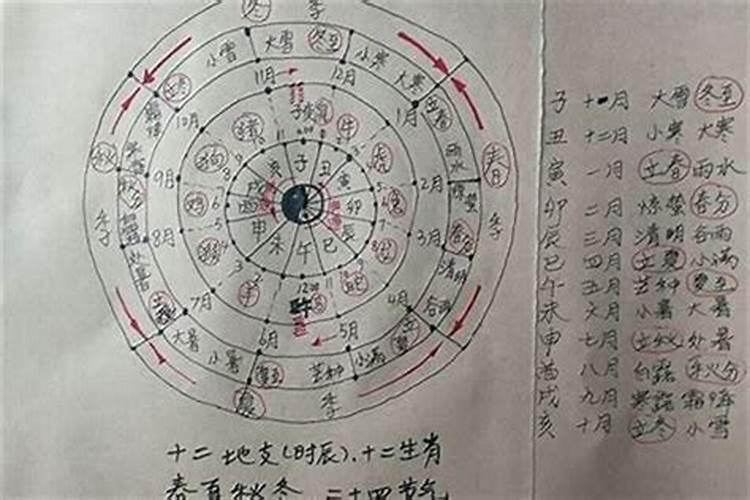 冬 季
小雪 大雪 冬至 小寒 大寒
立冬 11月 12月 立春
10月 1月 雨水
秋 春
9月 2月 惊蛰
秋分 春分
季 季
8月 3月 清明
处暑 谷雨
立秋 7月 4月 立夏
大暑 6月 5月 小满
小暑 夏至 芒种
夏 季
猪 鼠 牛
狗 虎
鸡 兔
猴 龙
羊 马 蛇
亥 子 丑
戌 寅
酉 卯
申 辰
未 午 巳
子 十一月 大雪 冬至
丑 十二月 小寒 大寒
寅 一月 立春 雨水
卯 二月 惊蛰 春分
辰 三月 清明 谷雨
巳 四月 立夏 小满
午 五月 芒种 夏至
未 六月 小暑 大暑
申 七月 立秋 处暑
酉 八月 白露 秋分
戌 九月 寒露 霜降
亥 十月 立冬 小雪
十二地支(时辰)、十二生肖
春夏秋冬 二十四节气